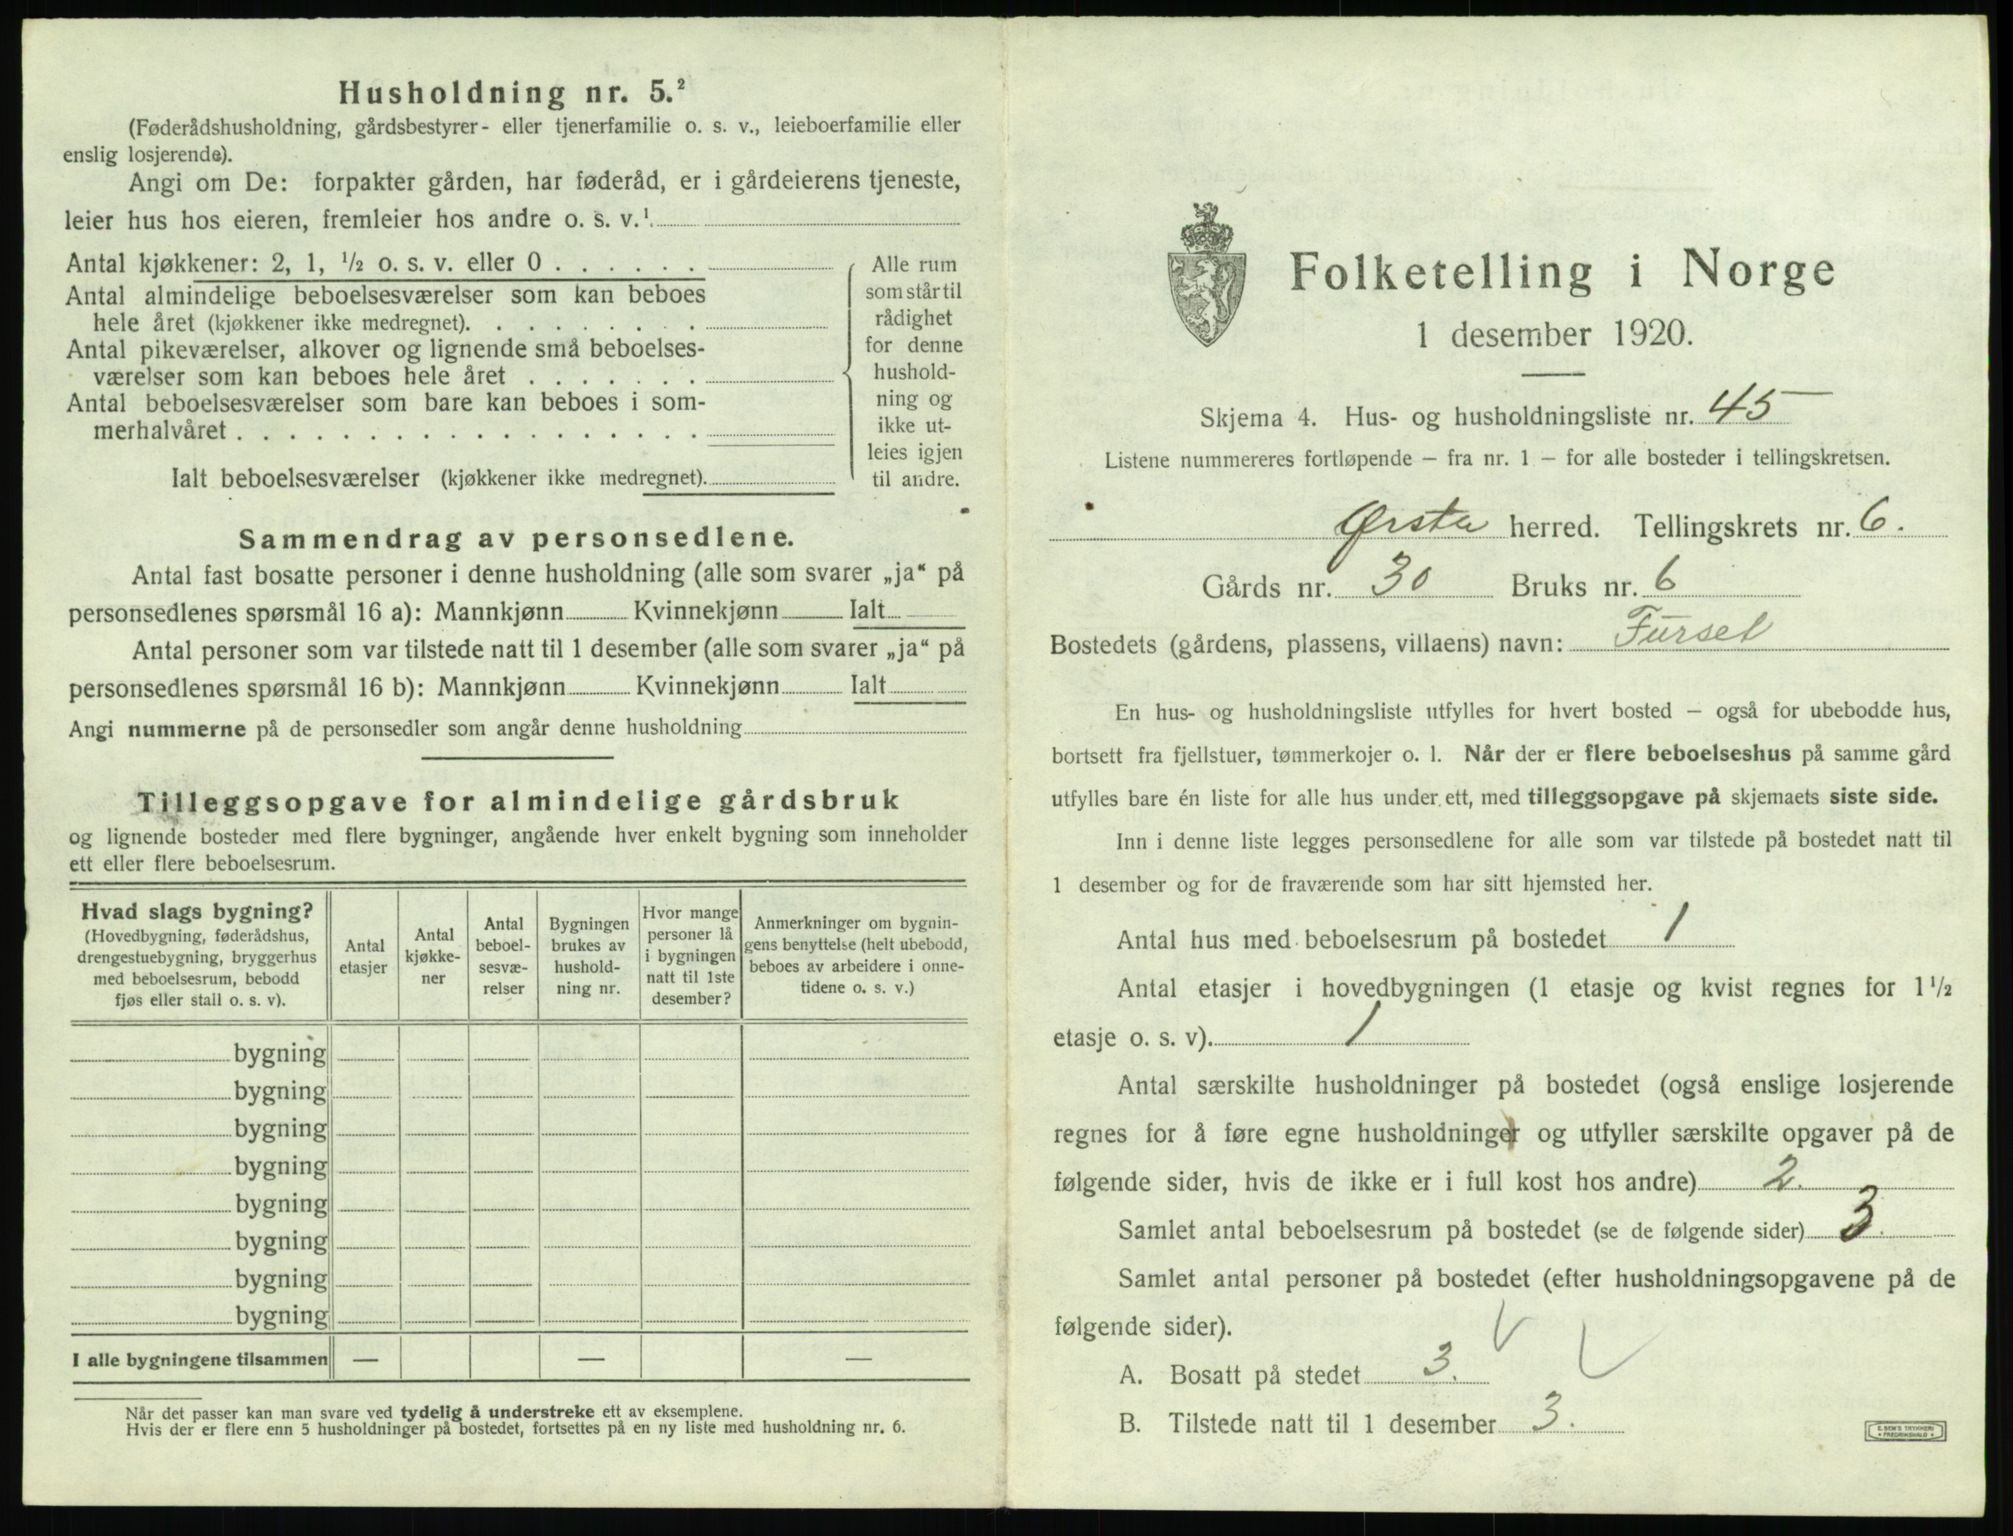 Husholdning nr. 5.²
(Føderådshusholdning, gårdsbestyrer- eller tjenerfamilie o. s. v., leieboerfamilie eller
enslig losjerende).
Angi om De: forpakter gården, har føderåd, er i gårdeierens tjeneste,
leier hus hos eieren, fremleier hos andre o. s. v.¹
Antal kjøkkener: 2, 1, ½ o. s. v. eller 0 . . . . . .
Antal almindelige beboelsesværelser som kan beboes
hele året (kjøkkener ikke medregnet). . . . . . . . .
Antal pikeværelser, alkover og lignende små beboelses-
værelser som kan beboes hele året . . . . . . .
Antal beboelsesværelser som bare kan beboes i som-
merhalvåret . . . . . . . . . . . . . . . . . .
Ialt beboelsesværelser (kjøkkener ikke medregnet).
Alle rum
som står til
rådighet
for denne
hushold-
ning og
ikke ut-
leies igjen
til andre.
Sammendrag av personsedlene.
Antal fast bosatte personer i denne husholdning (alle som svarer „ja“ på
personsedlenes spørsmål 16 a): Mannkjønn Kvinnekjønn Ialt
Antal personer som var tilstede natt til 1 desember (alle som svarer „ja“ på
personsedlenes spørsmål 16 b): Mannkjønn Kvinnekjønn Ialt
Angi nummerne på de personsedler som angår denne husholdning
Tilleggsopgave for almindelige gårdsbruk
og lignende bosteder med flere bygninger, angående hver enkelt bygning som inneholder
ett eller flere beboelsesrum.
Hvad slags bygning?
(Hovedbygning, føderådshus,
drengestuebygning, bryggerhus
med beboelsesrum, bebodd
fjøs eller stall o. s. v).
Antal
etasjer
Antal
kjøkke-
ner
Antal
beboel-
sesvæ-
relser
Bygningen
brukes av
hushold-
ning nr.
Hvor mange
personer lå
i bygningen
natt til 1ste
desember?
Anmerkninger om bygnin-
gens benyttelse (helt ubebodd,
beboes av arbeidere i onne-
tidene o. s. v.)
bygning
bygning
bygning
bygning
bygning
bygning
bygning
bygning
I alle bygningene tilsammen — — —
Når det passer kan man svare ved tydelig å understreke ett av eksemplene.
Hvis der er flere enn 5 husholdninger på bostedet, fortsettes på en ny liste med husholdning nr. 6.
Folketelling i Norge
1 desember 1920.
Skjema 4. Hus- og husholdningsliste nr. 45
Listene nummereres fortløpende – fra nr. 1 – for alle bosteder i tellingskretsen.
Ørsta herred. Tellingskrets nr. 6.
Gårds nr. 30 Bruks nr. 6
Bostedets (gårdens, plassens, villaens) navn: Furset
En hus- og husholdningsliste utfylles for hvert bosted – også for ubebodde hus,
bortsett fra fjellstuer, tømmerkojer o. l. Når der er flere beboelseshus på samme gård
utfylles bare én liste for alle hus under ett, med tilleggsopgave på skjemaets siste side.
Inn i denne liste legges personsedlene for alle som var tilstede på bostedet natt til
1 desember og for de fraværende som har sitt hjemsted her.
Antal hus med beboelsesrum på bostedet 1
Antal etasjer i hovedbygningen (1 etasje og kvist regnes for 1½
etasje o. s. v). 1
Antal særskilte husholdninger på bostedet (også enslige losjerende
regnes for å føre egne husholdninger og utfyller særskilte opgaver på de
følgende sider, hvis de ikke er i full kost hos andre) 2.
Samlet antal beboelsesrum på bostedet (se de følgende sider) 3.
Samlet antal personer på bostedet (efter husholdningsopgavene på de
følgende sider).
A. Bosatt på stedet 3.
B. Tilstede natt til 1 desember 3.
E. SEM'S TRYKKERI
• FREDRIKSHALD •